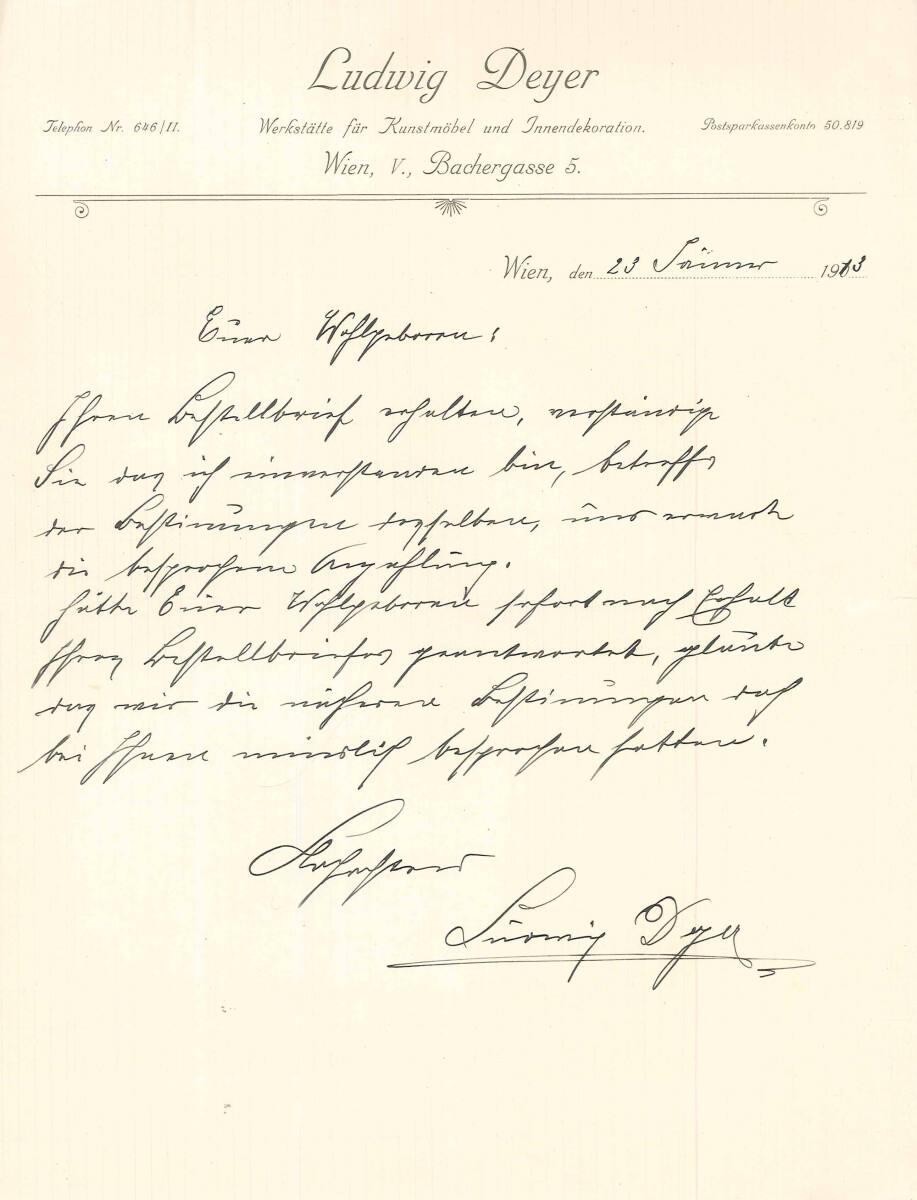 Ludwig Deyer
Telephon Nr. 646/II.
Werkstätte für Kunstmöbel und Innendekoration.
Postsparkassenkonto 50.819
Wien, V., Bachergasse 5.
Wien, den 23 Jänner 1913
Euer Wohlgeboren!
Ihren Bestellbrief erhalten, verständige
Sie das ich einverstanden bin, betreffs
der Bestimungen desselben, uns erwarte
die besprochene Anzahlung.
hätte Euer Wohlgeboren sofort nach Erhalt
Ihres Bestellbriefes geantwortet, glaubte
das wir die näheren Bestimungen doch
bei Ihnen mündlich besprochen hatten.
Hochachtend
Ludwig Deyer